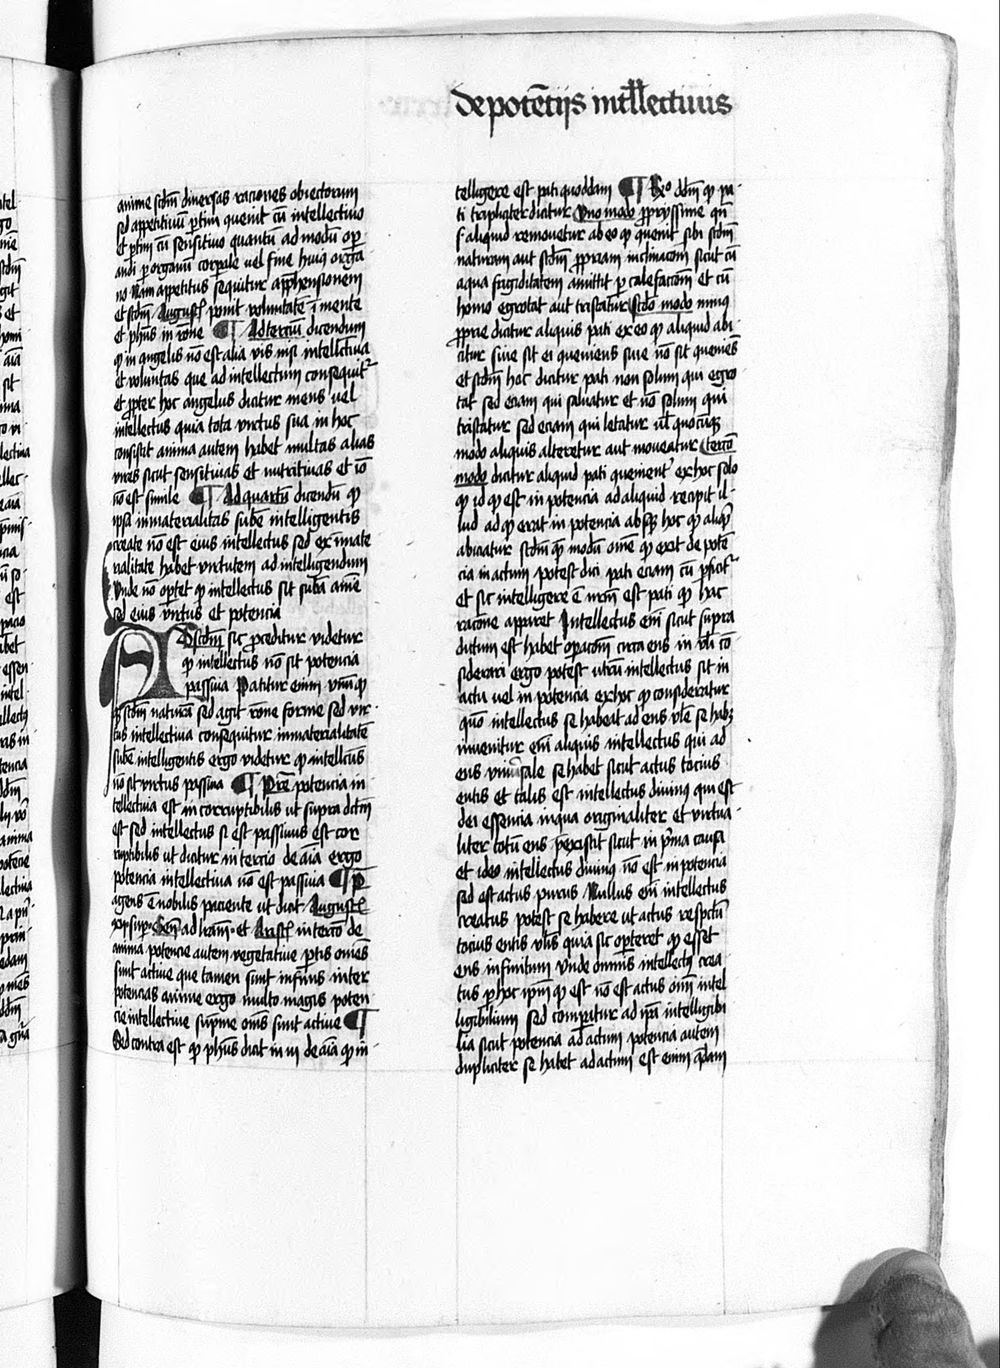 de potēcijs intll̄ectiuis
anime scdm̄ diuersas raciones obiectorum
sed appetitiuū ꝑtim ꝯuenit cū intellectiuo
et ꝑtim cū sensitiuo quantū ad modū oꝑ
andi ꝑ organū corꝑale vel sine huiꝰ orgā
no Nam appetitus sequitur appͣhensionem
et scdm̄ Augustī ponit voluntatē ī mente
et phūs in rōne ¶ Ad terciū dicendum
ꝙ in angelis nō est alia vis nisi intellectiua
et voluntas que ad intellectum consequitᷣ
et ꝓpter hoc angelus dicitur mens vel
intellectus quia tota virtus sua in hoc
consistit anima autem habet multas alias
vires sicut sensitiuas et nutritiuas et iō
nō est simile ¶ Ad quartū dicendū ꝙ
ipsa inmaterialitas subē intelligentis
create nō est eius intellectus sed ex inmate
rialitate habet virtutem ad intelligendum
Vnde nō oꝑtet ꝙ intellectus sit subā anīe
sed eius virtus et potencia
Ad scdm̄ sic ꝓceditur videtur
ꝙ intellectus nō sit potencia
passiua Patitur enim vnūqͦꝙ
scdm̄ naturā sed agit rōne forme sed vir
tus intellectiua consequitur inmaterialitatē
subē intelligentis ergo videtur ꝙ intellctus
nō sit virtus passiua ¶ Pret̄ potencia in
tellectiua est in corruptibilis ut supra dcm̄
est sed intellectus si est passiuus est cor
ruptibilis ut dicitur in tercio de aīa ergo
potencia intellectiua nō est passiua ¶ P̄
agens ē nobilius paciente ut dicit Augustī
xij suꝑ Geñ ad lrām et Aristī in tercō de
anima potencie autem vegetatiue ꝑtis omēs
sunt actiue que tamen sunt infimis inter
potencias anime ergo multo magis poten
cie intellectiue supͣme oms̄ sunt actiue ¶
Sed contra est ꝙ phūs dicit in iij de aīa ꝙ in
telligere est pati quoddam ¶ Rͦ dd̄m ꝙ pa
ti tripliciter dicitur Vno modo ꝓpryssime qn̄
s. aliquid remouetur ab eo ꝙ ꝯuenit sibi scdm̄
naturam aut scdm̄ ꝓpriam inclinacōm sicut cū
aqua frigiditatem amittit ꝑ calefactōm et cū
homo egrotat aut tristatur Scdo modo minꝰ
ꝓprie dicitur aliquis pati ex eo ꝙ aliquid abi
citur siue sit ei ꝯueniens siue nō sit ꝯueniēs
et scdm̄ hoc dicitur pati non solum qui egro
tat sed eciam qui sanatur et nō solum qui
tristatur sed eciam qui letatur ul̄ quocūqꝫ
modo aliquis alteretur aut moueatur Tercō
modo dicitur aliquid pati ꝯmunitᷣ ex hoc solo
ꝙ id ꝙ est in potencia ad aliquid recipit il
lud ad ꝙ erat in potencia absqꝫ hoc ꝙ aliqͥd
abiciatur scdm̄ quē modū omē ꝙ exit de potē
cia in actum potest dici pati eciam cū ꝑficitᷣ
et sic intelligere ē nrm̄ est pati ꝙ hac
racōne apparet Intellectus enī sicut supra
dictum est habet oꝑacōm circa ens in vlī cō
siderari ergo potest utrū intellectus sit in
actu vel in potencia ex hoc ꝙ consideratur
quō intellectus se habeat ad ens vlē se habꝫ
inuenitur enī aliquis intellectus qui ad
ens vniūsale se habet sicut actus tocius
entis et talis est intellectus diuinꝰ qui est
dei essencia in qua originaliter et virtua
liter totū ens ꝑexistit sicut in pͥma causa
et ideo intellectus diuinꝰ nō est in potencia
sed est actus purus Nullus enī intellectus
creatus potest se habere ut actus respctū
tocius entis vlīs quia sic oꝑteret ꝙ esset
ens infinitum Vnde omnis intellectꝰ crea
tus ꝑ hoc ipm̄ ꝙ est nō est actus oīm intel
ligibilium sed comꝑatur ad ipā intelligibi
lia sicut potencia ad actum potencia autem
dupliciter se habet ad actum est enim qͣdam